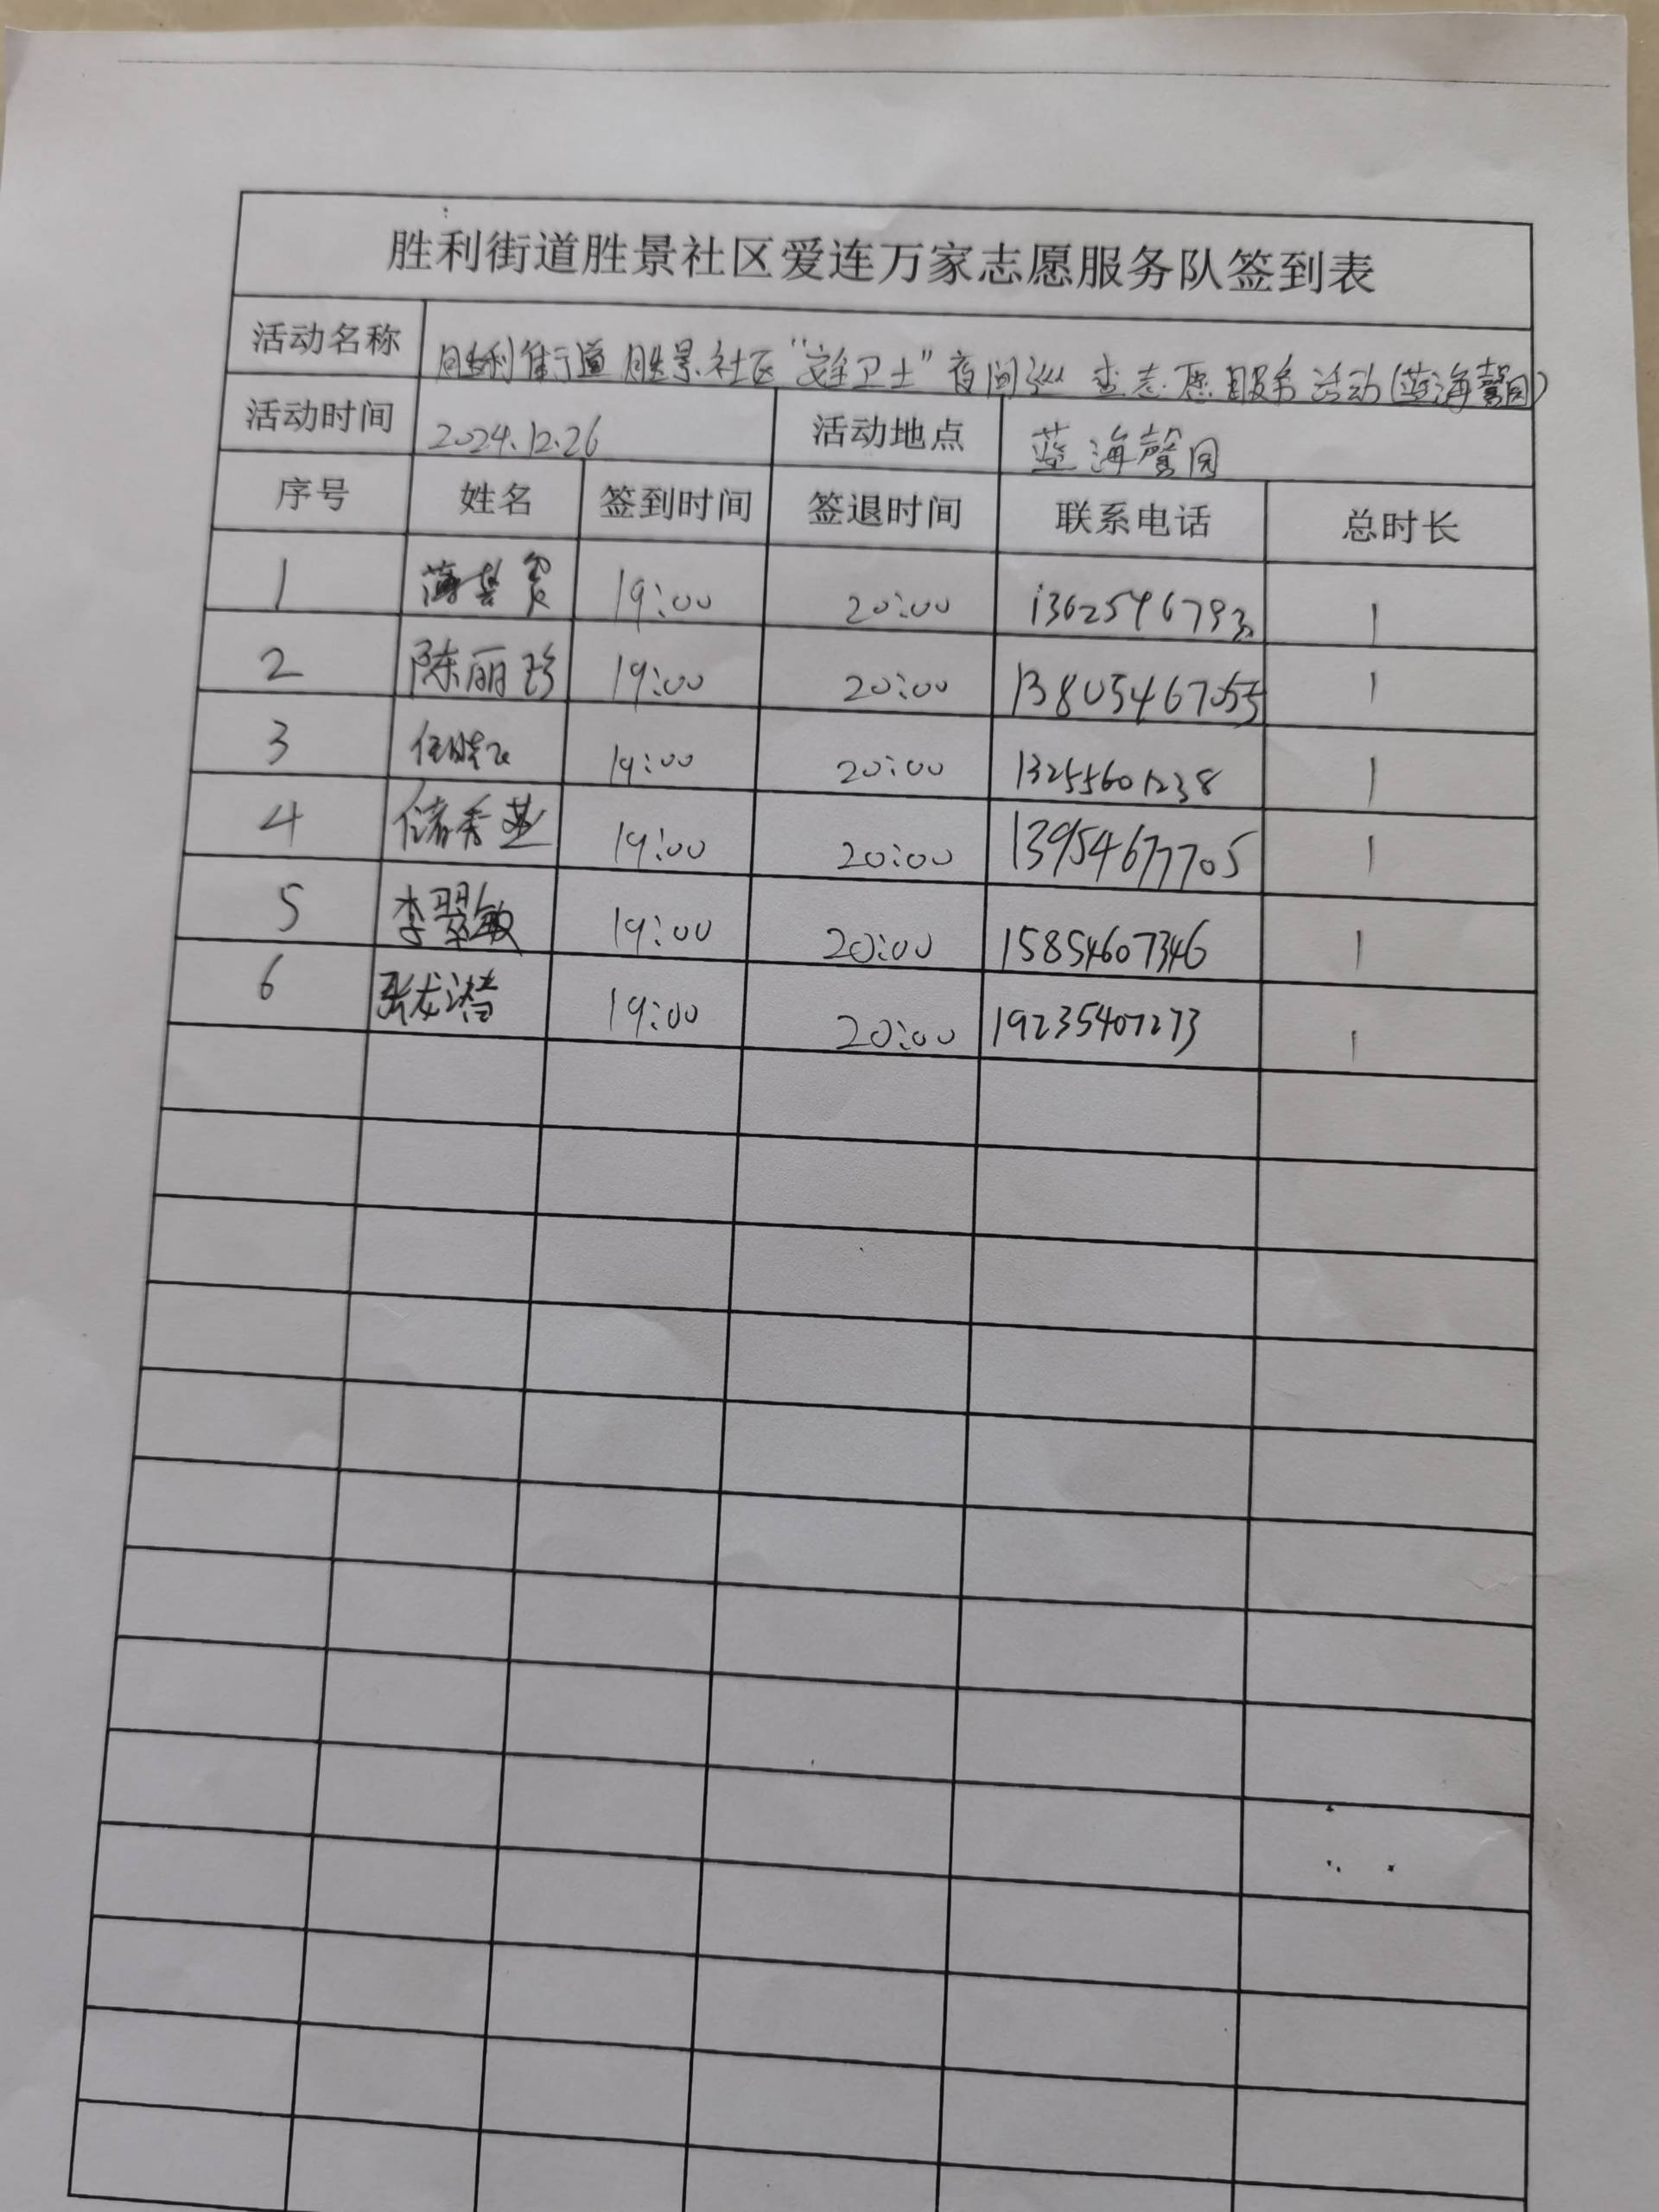 胜利街道胜景社区爱连万家志愿服务队签到表
活动名称 胜利街道胜景社区“安全卫士”夜间巡查志愿服务活动(蓝海馨园)
活动时间 2024.12.26 活动地点 蓝海馨园
序号 姓名 签到时间 签退时间 联系电话 总时长
1 19:00 20:00 1
2 陈丽珍 19:00 20:00 13805467055 1
3 19:00 20:00 13255601238 1
4 储秀燕 19:00 20:00 13954677705 1
5 李翠敏 19:00 20:00 15854607346 1
6 张龙潜 19:00 20:00 19235407273 1